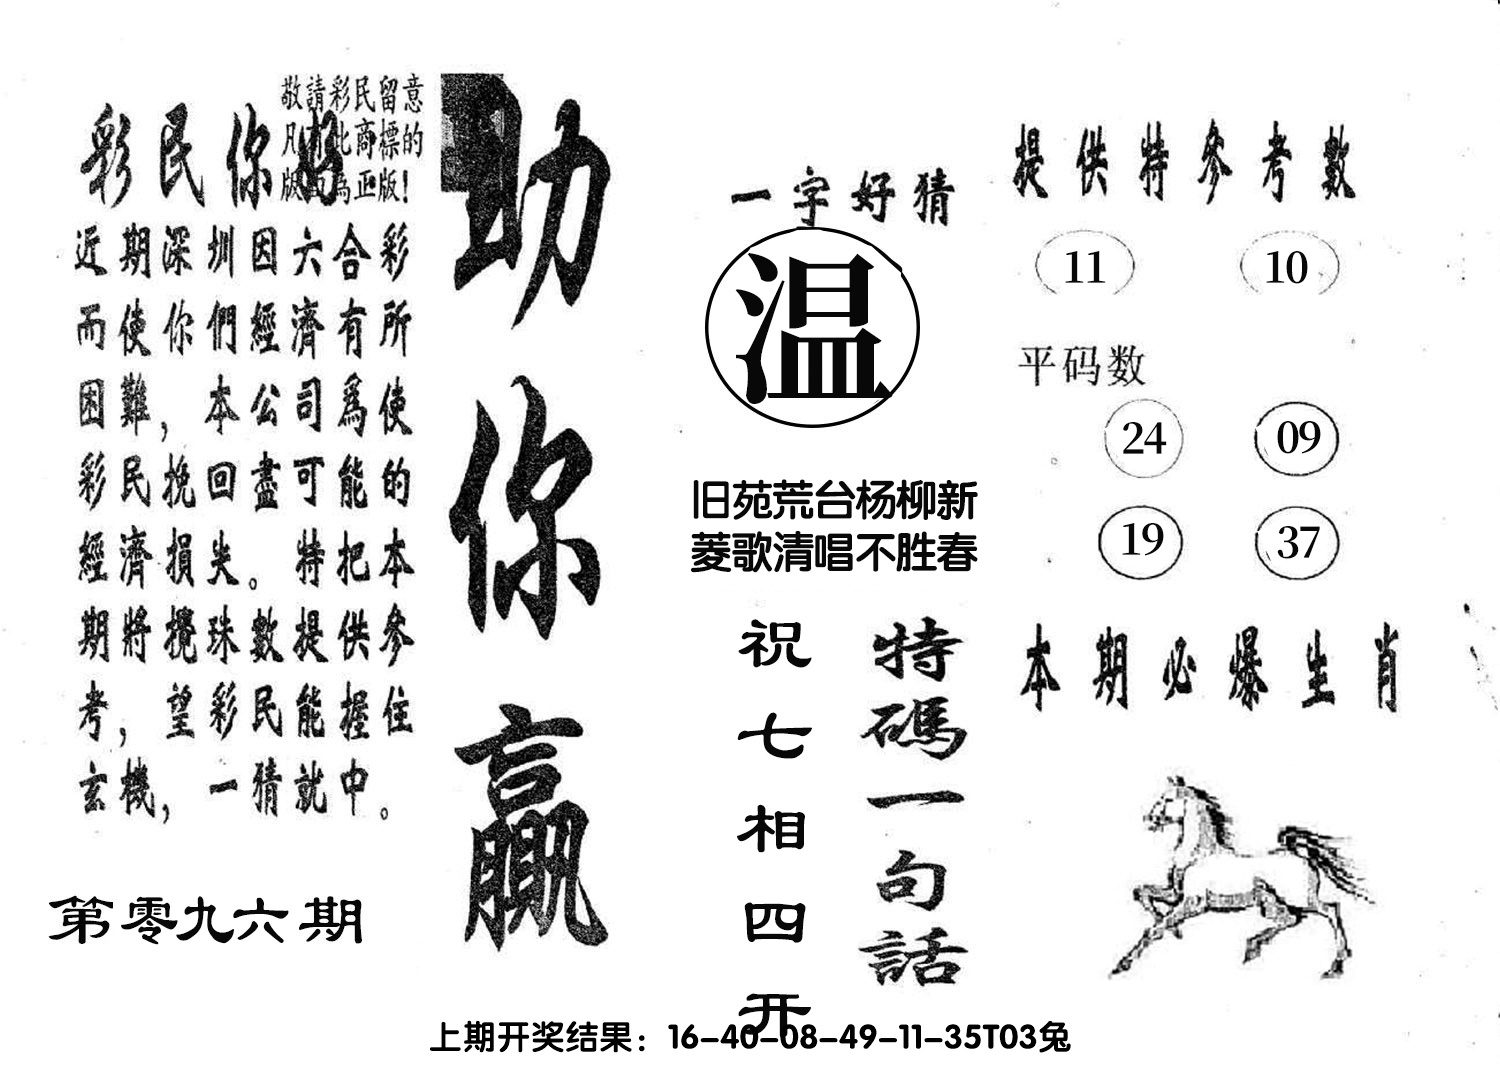 敬請彩民留意
凡有此商標的
版面為正版!
彩民你好
近期深圳因六合彩
而使你們經濟有所
困難，本公司爲使
彩民挽回盡可能的
經濟損失。特把本
期將攪珠數提供參
考，望彩民能握住
玄機，一猜就中。
第零九六期
助你贏
一字好猜
温
旧苑荒台杨柳新
菱歌清唱不胜春
特碼一句話
祝七相四开
提供特參考數
11 10
平码数
24 09
19 37
本期必爆生肖
上期开奖结果：16-40-08-49-11-35T03兔